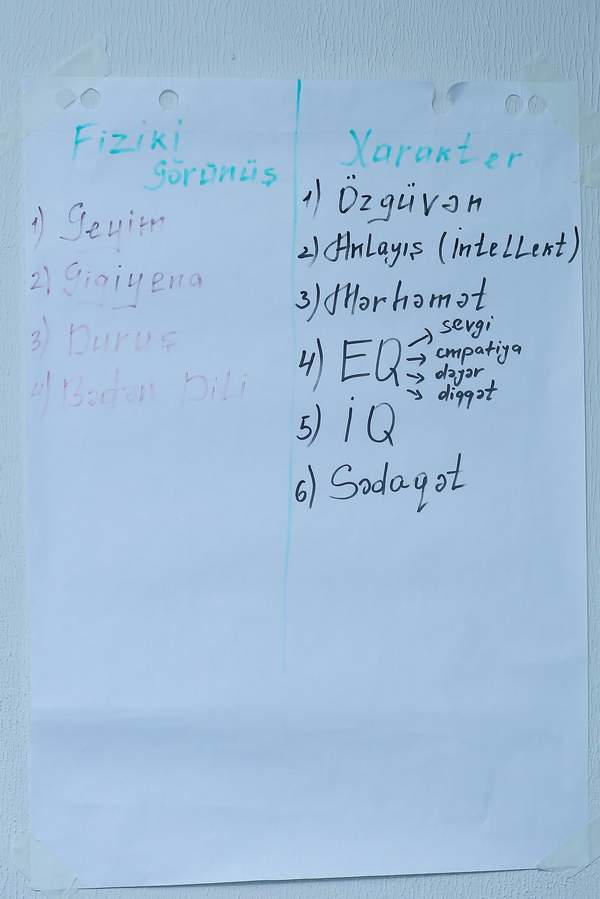 Fiziki
görünüş
1) Geyim
2) Gigiyena
3) Duruş
4) Bədən Dili
Xarakter
1) Özgüvən
2) Anlayış (İntellekt)
3) Mərhəmət
4) EQ → sevgi
→ empatiya
→ dəyər
→ diqqət
5) İQ
6) Sədaqət